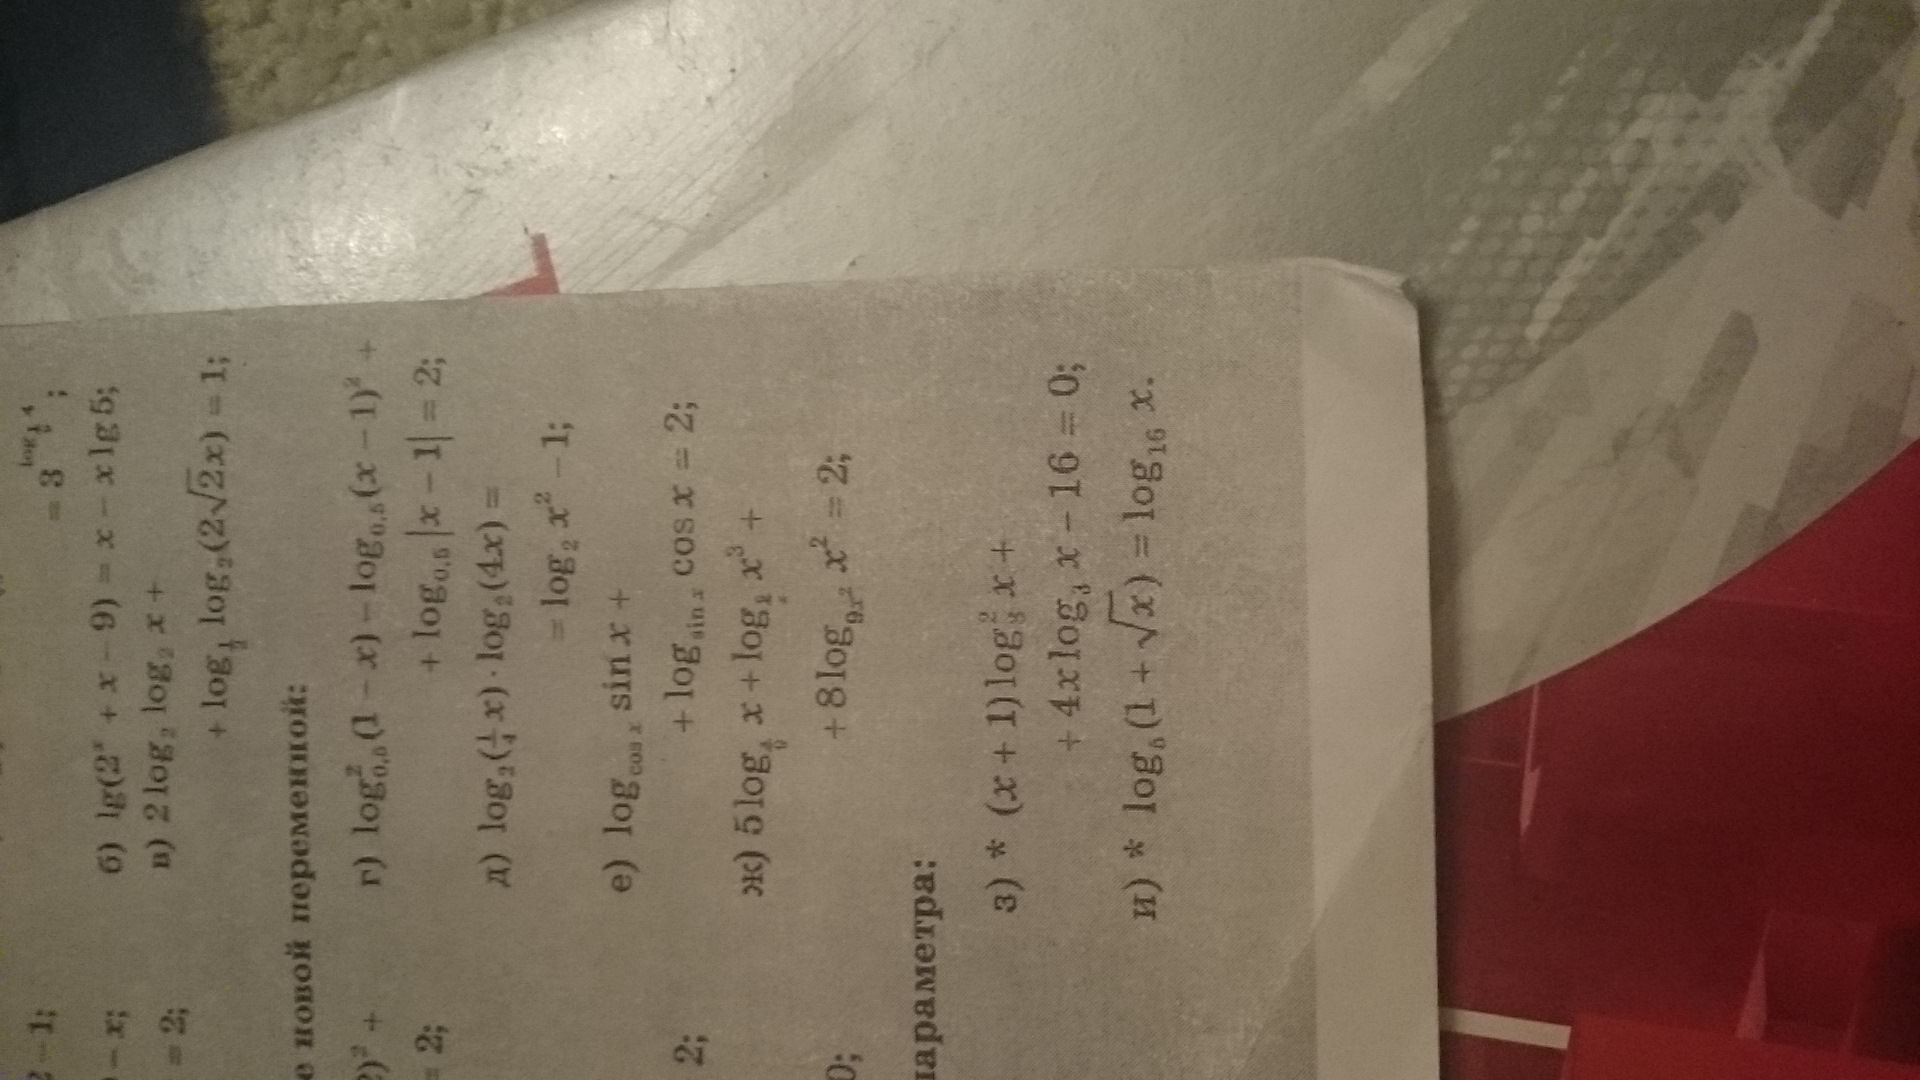 = 3^{log_{1/2} 4};
б) lg(2^x + x − 9) = x − x lg 5;
в) 2 log_2 log_2 x +
+ log_{1/2} log_2(2√2x) = 1;
новой переменной:
г) log²_{0,5}(1 − x) − log_{0,5}(x − 1)² +
+ log_{0,5}|x − 1| = 2;
д) log_2(1/4 x) · log_2(4x) =
= log_2 x² − 1;
е) log_{cos x} sin x +
+ log_{sin x} cos x = 2;
ж) 5 log x + log x³ +
+ 8 log_{9x²} x² = 2;
параметра:
з) * (x + 1) log²_3 x +
+ 4x log_3 x − 16 = 0;
и) * log_5(1 + √x) = log_{16} x.
− 1;
− x;
= 2;
)² +
= 2;
2;
0;